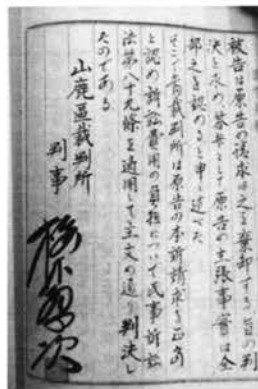 被告は原告の請求は之を棄却する旨の判
決を求め答弁として原告の主張事實は全
部之を認めると申し述べた
そこで当裁判所は原告の本訴請求を正当
と認め訴訟費用の負担について民事訴訟
法第八十九條を適用して主文の通り判決し
たのである
山鹿區裁判所
判事